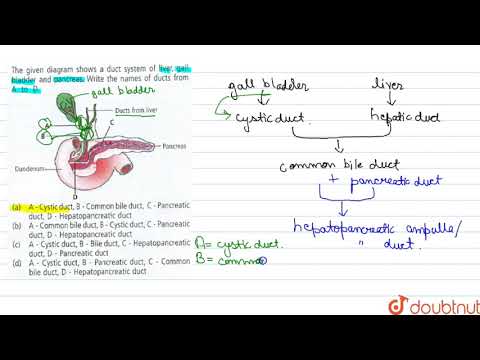 The given diagram shows a duct system of liver, gall
bladder and pancreas. Write the names of ducts from
A to D.
gall bladder
Ducts from liver
C
Pancreas
Duodenum
D
(a) A - Cystic duct, B - Common bile duct, C - Pancreatic
duct, D - Hepatopancreatic duct
(b) A - Common bile duct, B - Cystic duct, C - Pancreatic
duct, D - Hepatopancreatic duct
(c) A - Cystic duct, B - Bile duct, C - Hepatopancreatic
duct, D - Pancreatic duct
(d) A - Cystic duct, B - Pancreatic duct, C - Common
bile duct, D - Hepatopancreatic duct
gall bladder liver
cystic duct. hepatic duct
common bile duct
+ pancreatic duct
hepatopancreatic ampulla/
" duct.
A = cystic duct.
B = common
doubtnut